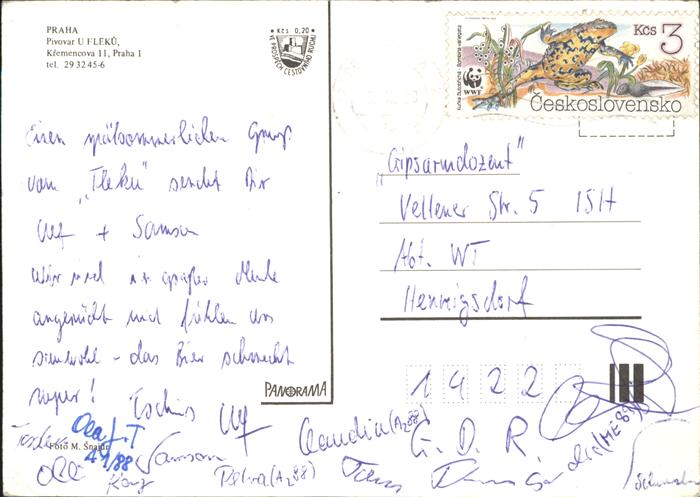 PRAHA
Pivovar U FLEKŮ,
Křemencova 11, Praha 1
tel. 29 32 45-6
Kčs 0,20
VE PROSPĚCH CESTOVNÍHO RUCHU
Kčs 3
WWF
Československo
Einen spätsommerlichen Gruß
vom „Fleku" sendet Dir
Ulf + Samson
Wir sind in großer Meute
angerückt und fühlen uns
sauwohl - das Bier schmeckt
super! Tschüs Ulf
„Gipsarmdozent"
Veltener Str. 5 15H
Abt. WT
Hennigsdorf
PANORAMA
1422
G. D. R.
Claudia (A288)
Olaf. T
Foto M. Šnajdr
Samson
Petra (A288)